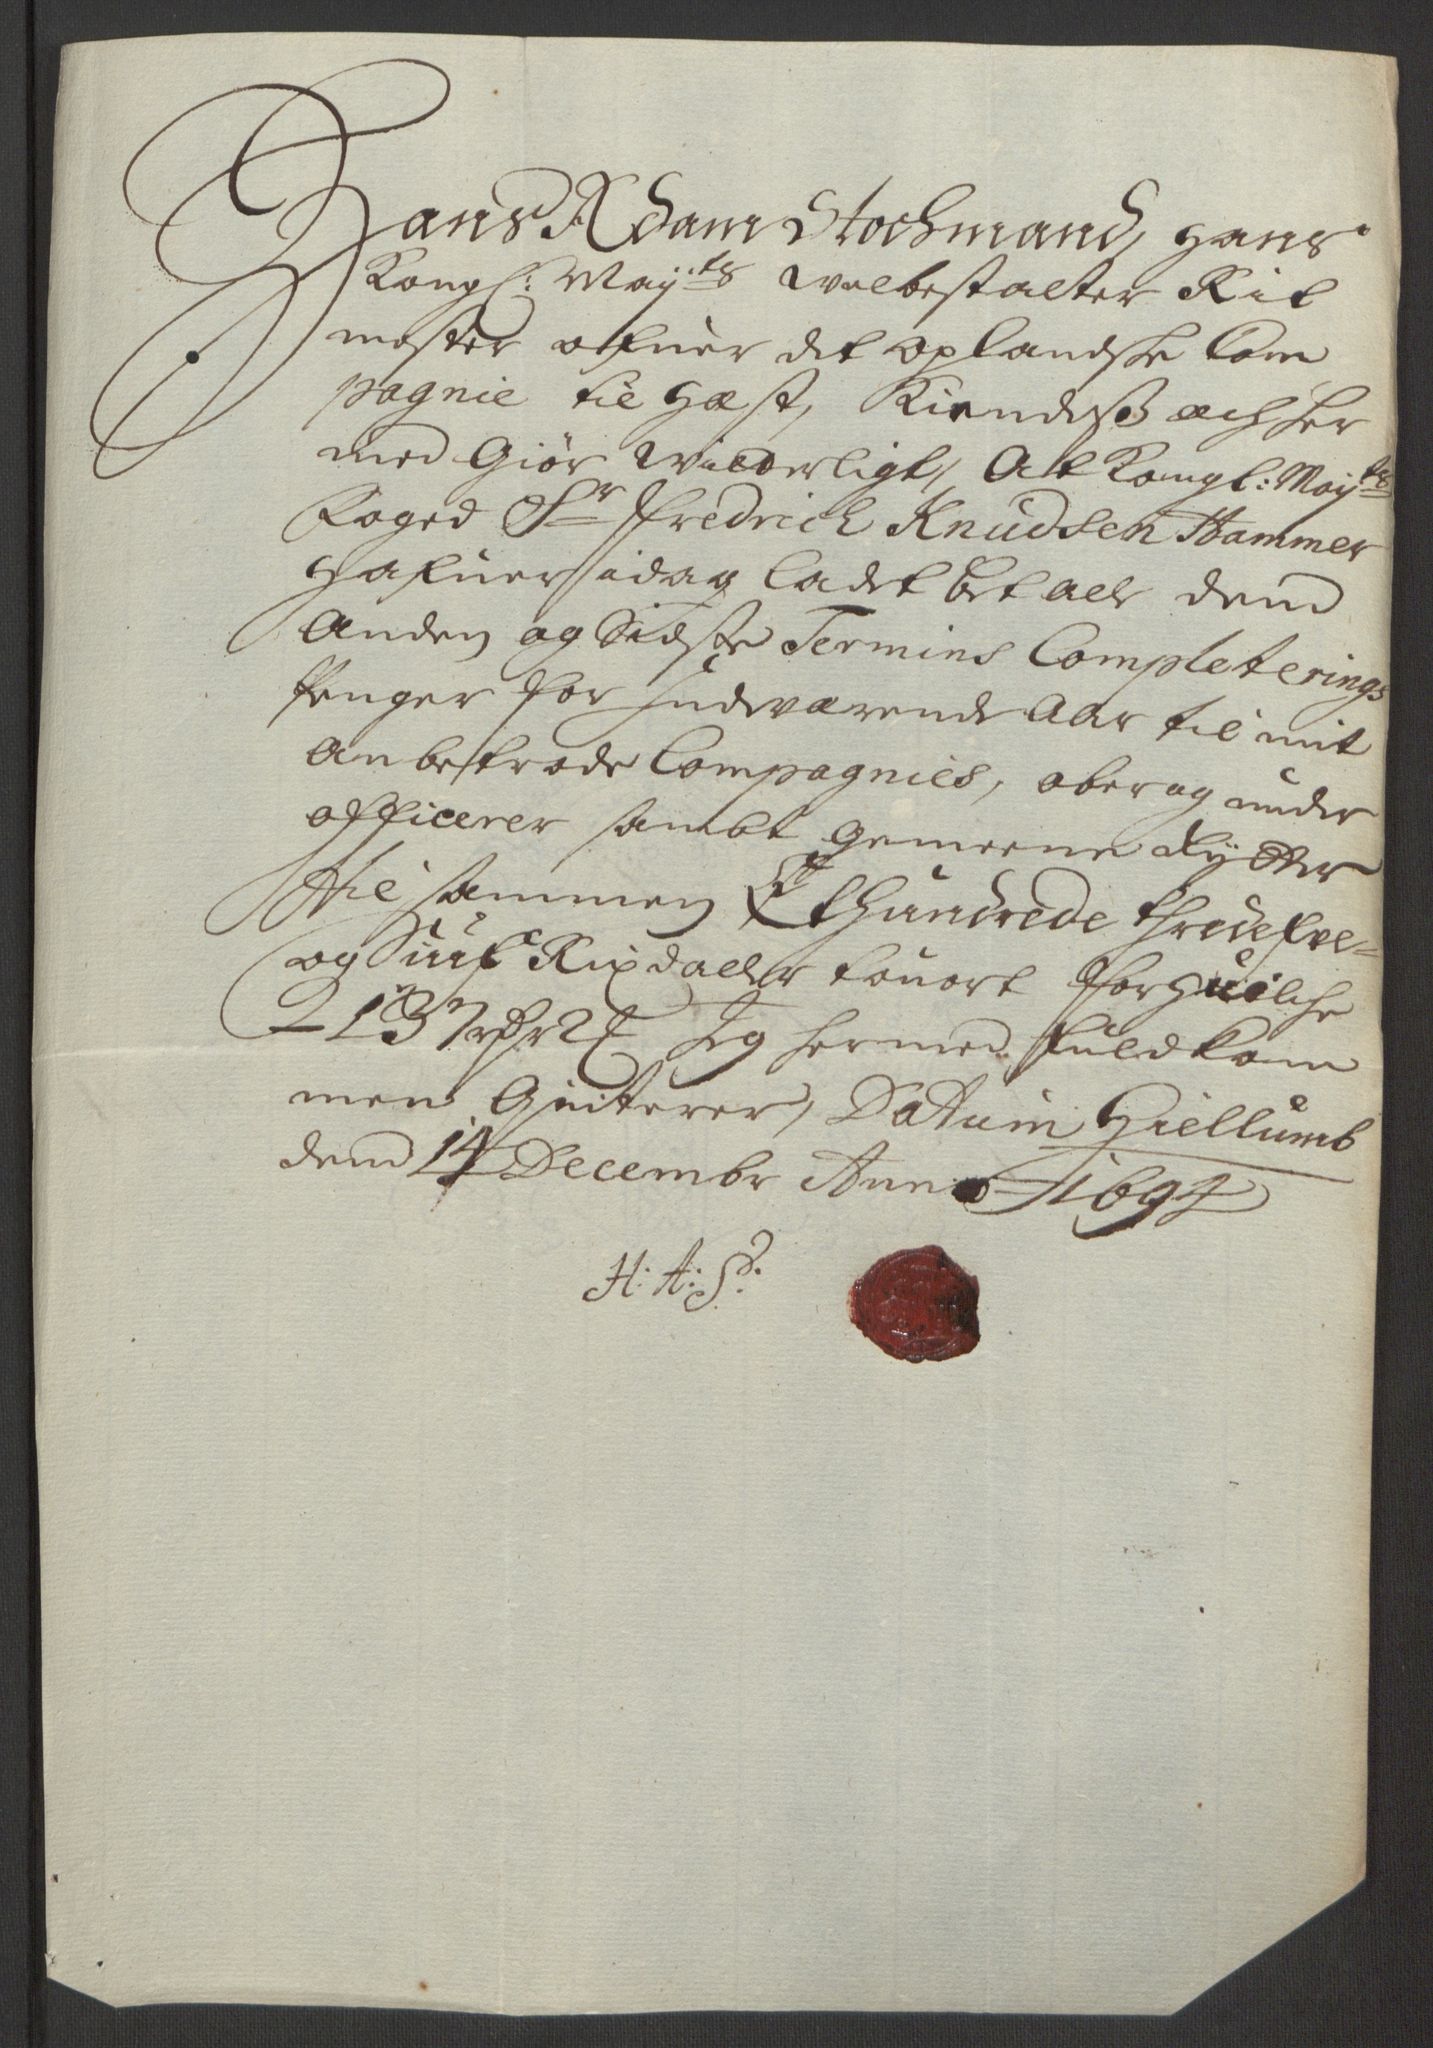 Hans Adam Stochmand, Hans
Kongl: Mayts welbestalter Rit
mester ofuer det oplandske Com
pagnie til Hæst, Kiendeß och her
med Giør witterligt, At Kongl: Mayts
Foged Sr Fredrich Knudsen Hammer
Hafuer idag ladet betale dend
Anden og Sidste Termins Completerings
Penger for Indeværende Aar til mit
Anbetrode Compagnies, ober og under
officerer sambt gemeene Rytter
til sammen Et Hundrede tredefve-
og Siuf Rixdaler tou ort for Huilche
137 rdr 2 Jeg hermed fuldkom
men Quiterer, Datum Hiellumb
dend 14 Decembr Anno 1694
H: A: S: